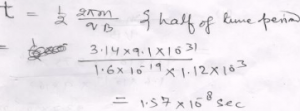 t = 1/2 2πm/qB { half of time period
= 3.14×9.1×10^31 / 1.6×10^-19×1.12×10^3
= 1.57×10^-8 sec